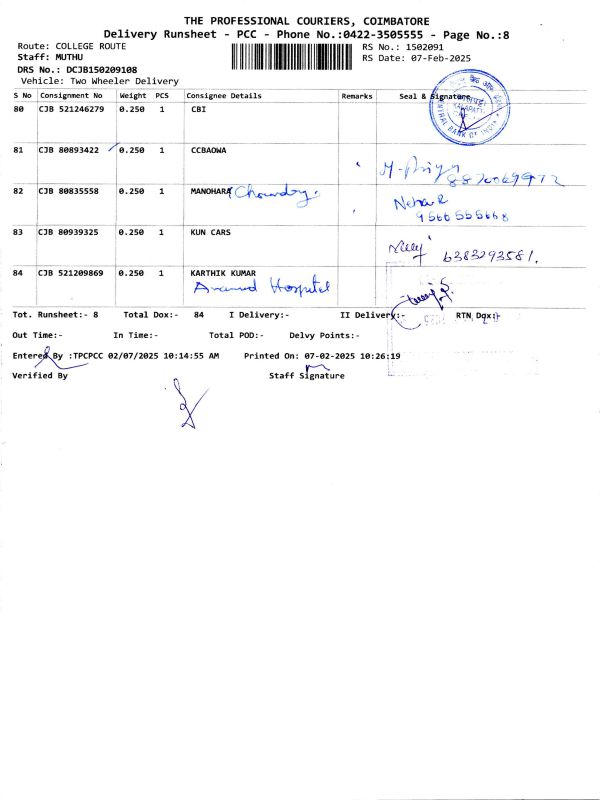 THE PROFESSIONAL COURIERS, COIMBATORE
Delivery Runsheet - PCC - Phone No.:0422-3505555 - Page No.:8
Route: COLLEGE ROUTE RS No.: 1502091
Staff: MUTHU RS Date: 07-Feb-2025
DRS No.: DCJB150209108
Vehicle: Two Wheeler Delivery
S No Consignment No Weight PCS Consignee Details Remarks Seal & Signature
80 CJB 521246279 0.250 1 CBI
CENTRAL BANK OF INDIA
81 CJB 80893422 0.250 1 CCBAOWA
M-Priya
82 CJB 80835558 0.250 1 MANOHARA Chowdry.
9566555668
83 CJB 80939325 0.250 1 KUN CARS
6383293581.
84 CJB 521209869 0.250 1 KARTHIK KUMAR
Anand Hospital
Tot. Runsheet:- 8 Total Dox:- 84 I Delivery:- II Delivery:- RTN Dox:-
Out Time:- In Time:- Total POD:- Delvy Points:-
Entered By :TPCPCC 02/07/2025 10:14:55 AM Printed On: 07-02-2025 10:26:19
Verified By Staff Signature